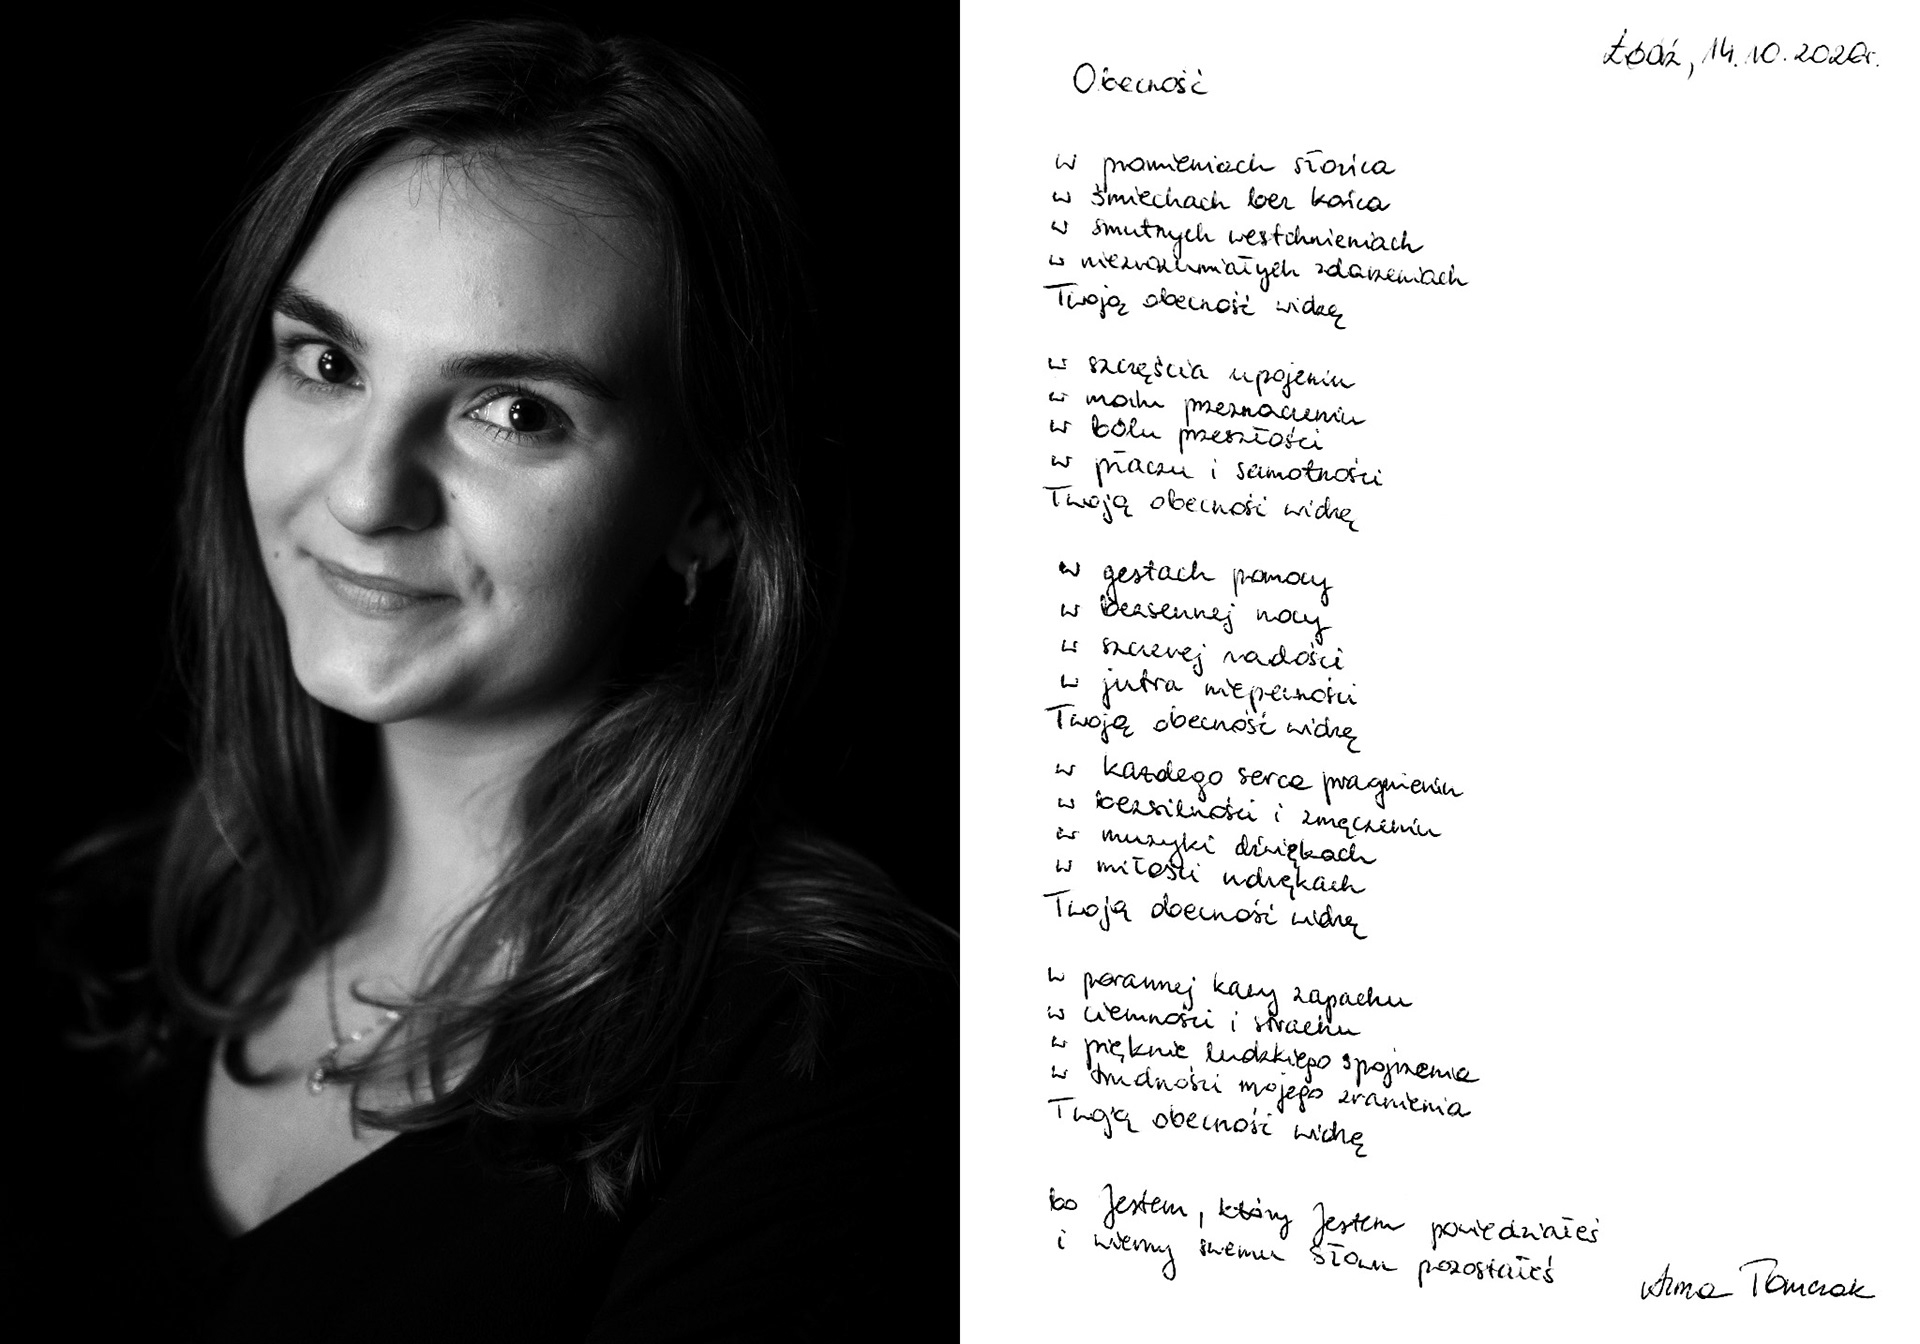 Łódź, 14.10.2020r.
Obecność
w promieniach słońca
w śmiechach bez końca
w smutnych westchnieniach
w niezrozumiałych zdarzeniach
Twoją obecność widzę
w szczęścia upojeniu
w moim przeznaczeniu
w bólu przeszłości
w płaczu i samotności
Twoją obecność widzę
w gestach pomocy
w bezsennej nocy
w szczerej radości
w jutra niepewności
Twoją obecność widzę
w każdego serca pragnieniu
w bezsilności i zmęczeniu
w muzyki dźwiękach
w miłości udrękach
Twoją obecność widzę
w porannej kawy zapachu
w ciemności i strachu
w pięknie ludzkiego spojrzenia
w trudności mojego zranienia
Twoją obecność widzę
bo Jestem, który Jestem powiedziałeś
i wierny swemu Słowu pozostałeś
Anna Tomczak